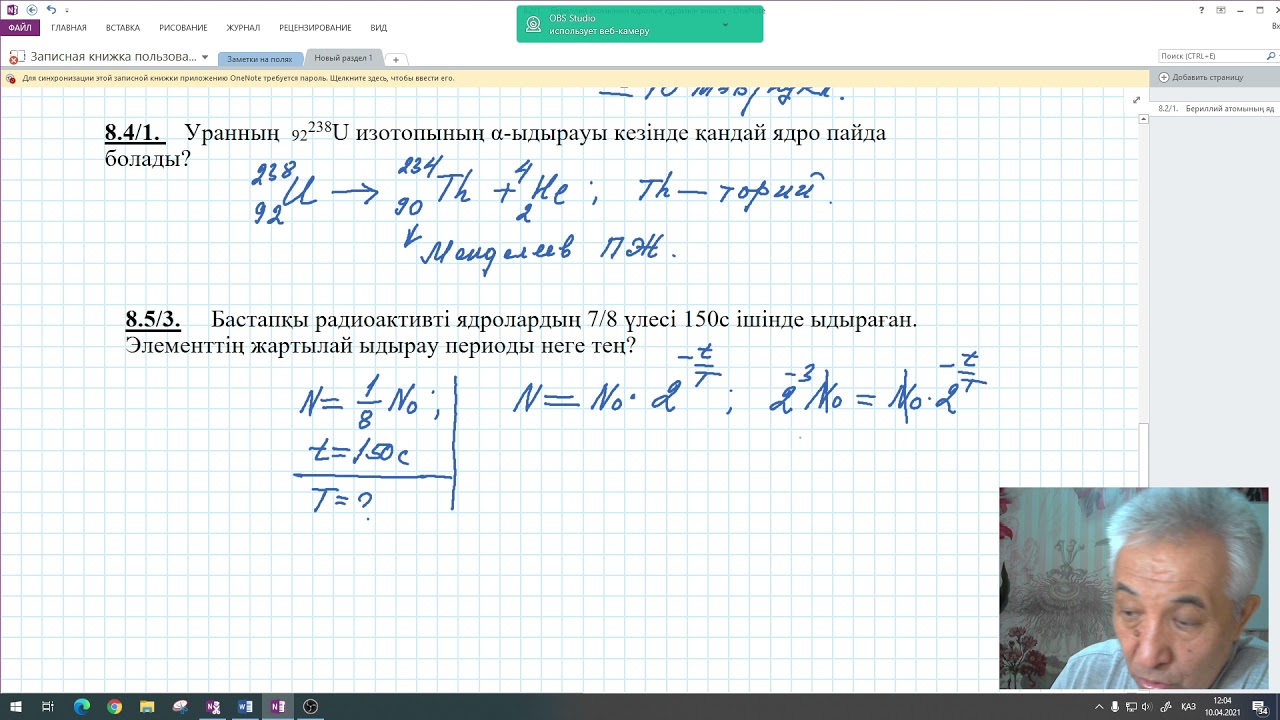 OBS Studio
использует веб-камеру
ФАЙЛ ГЛАВНАЯ ВСТАВКА РИСОВАНИЕ ЖУРНАЛ РЕЦЕНЗИРОВАНИЕ ВИД
Записная книжка пользова...
Заметки на полях
Новый раздел 1
Поиск (CTRL+E)
Для синхронизации этой записной книжки приложению OneNote требуется пароль. Щелкните здесь, чтобы ввести его.
Добавить страницу
8.2/1. Бериллий атомының яд
8.4/1. Уранның ₉₂²³⁸U изотопының α-ыдырауы кезінде қандай ядро пайда
болады?
²³⁸₉₂U → ²³⁴₉₀Th + ⁴₂He ; Th — торий.
↓ Менделеев ПЖ.
8.5/3. Бастапқы радиоактивті ядролардың 7/8 үлесі 150с ішінде ыдыраған.
Элементтің жартылай ыдырау периоды неге тең?
N = 1/8 N₀ ; N = N₀ · 2^(-t/T) ; 2⁻³ N₀ = N₀ · 2^(-t/T)
t = 150 с
T = ?
КАЗ
12:04
10.04.2021